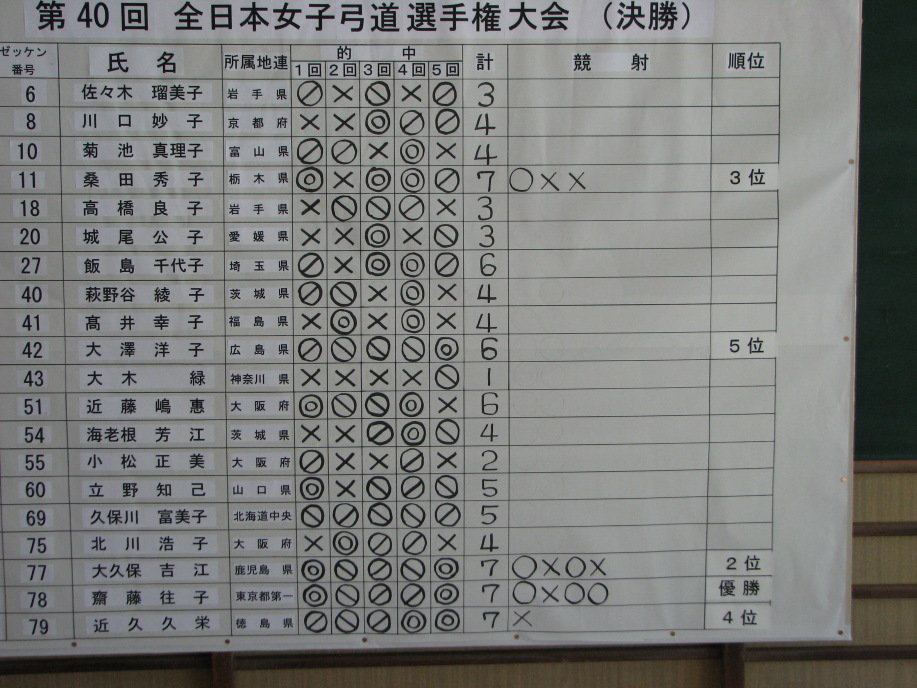 第40回 全日本女子弓道選手権大会 (決勝)
ゼッケン番号 氏名 所属地連 的中 計 競射 順位
1回 2回 3回 4回 5回
6 佐々木 瑠美子 岩手県 ⊘ × ⦸ × ⊘ 3
8 川口妙子 京都府 × × ◎ ⊘ ⊘ 4
10 菊池 真理子 富山県 ⊘ ⊘ × ◎ × 4
11 桑田秀子 栃木県 ◎ × ◎ ◎ ⊘ 7 ○×× 3位
18 高橋良子 岩手県 × ⦸ ⦸ ⊘ × 3
20 城尾公子 愛媛県 × × ◎ × ⦸ 3
27 飯島 千代子 埼玉県 ⊘ × ◎ ◎ ⊘ 6
40 萩野谷 綾子 茨城県 ⊘ ⦸ × ◎ × 4
41 髙井幸子 福島県 × ◎ × ◎ × 4
42 大澤洋子 広島県 ⊘ ⦸ ⦸ ⦸ ◎ 6 5位
43 大木緑 神奈川県 × × × × ⦸ 1
51 近藤嶋惠 大阪府 ◎ ⦸ ⦸ ◎ × 6
54 海老根 芳江 茨城県 × × ⊘ ◎ ⦸ 4
55 小松正美 大阪府 ⊘ × × ⊘ × 2
60 立野知己 山口県 ◎ × ⦸ ⊘ ⊘ 5
69 久保川 富美子 北海道中央 ⦸ ⊘ ⦸ ⦸ ⊘ 5
75 北川浩子 大阪府 × ◎ ⊘ ⊘ × 4
77 大久保 吉江 鹿児島県 ◎ ⦸ ⦸ ⊘ ◎ 7 ○×○× 2位
78 齋藤往子 東京都第一 ◎ ⦸ ⊘ ⊘ ◎ 7 ○×○○ 優勝
79 近久久栄 徳島県 ⊘ ⊘ ⊘ ◎ ◎ 7 × 4位